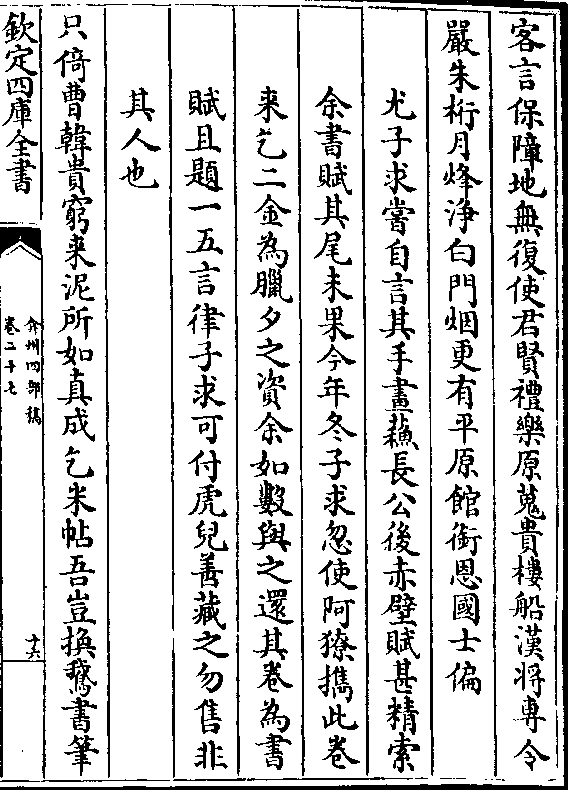 客言保障地無復使君賢禮樂原蒐貴樓船漢將專令
嚴朱桁月烽淨白門烟更有平原館銜恩國士偏
尤子求嘗自言其手畫蘓長公後赤壁賦甚精索
余書賦其尾未果今年冬子求忽使阿獠擕此卷
来乞二金為臘夕之資余如數與之還其卷為書
賦且題一五言律子求可付虎兒善藏之勿售非
其人也
只倚曹韓貴窮来泥所如真成乞朱帖吾豈換鵞書筆
欽定四庫全書
弇州四部稿
卷二十七
十六